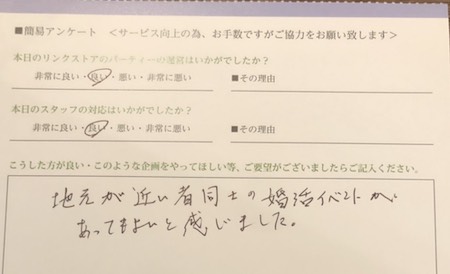 ■簡易アンケート ＜サービス向上の為、お手数ですがご協力をお願い致します＞
本日のリンクストアのパーティーの運営はいかがでしたか？
非常に良い・良い・悪い・非常に悪い ■その理由
本日のスタッフの対応はいかがでしたか？
非常に良い・良い・悪い・非常に悪い ■その理由
こうした方が良い・このような企画をやってほしい等、ご要望がございましたらご記入ください。
地元が近い者同士の婚活イベントが、
あってもよいと感じました。